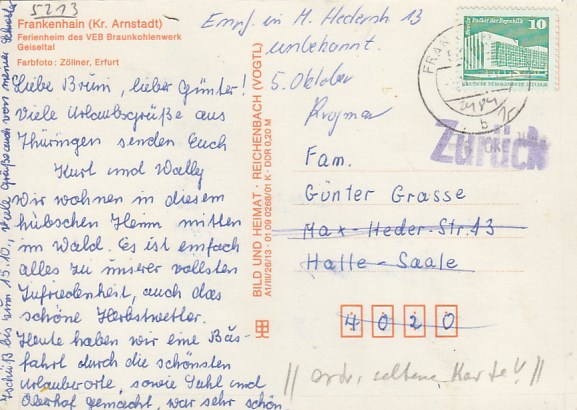 5213
Frankenhain (Kr. Arnstadt)
Ferienheim des VEB Braunkohlenwerk
Geiseltal
Farbfoto: Zöllner, Erfurt
Liebe Bruni, lieber Günter!
Viele Urlaubsgrüße aus
Thüringen senden Euch
Kurt und Wally
Wir wohnen in diesem
hübschen Heim mitten
im Wald. Es ist einfach
alles zu unserer vollsten
Zufriedenheit, auch das
schöne Herbstwetter.
Heute haben wir eine Bus-
fahrt durch die schönsten
Urlauberorte, sowie Suhl und
Oberhof gemacht, war sehr schön
bis zum 15.10., viele Grüße auch von meiner
BILD UND HEIMAT · REICHENBACH (VOGTL)
A1/III/26/13 · 01 09 0268/01 K · DDR 0,20 M
Empf. in M. Hederstr 13
unbekannt.
5. Oktober
10
Palast der Republik
DEUTSCHE DEMOKRATISCHE REPUBLIK
Zurück
Fam.
Günter Grasse
Max-Heder-Str. 13
Halle-Saale
4020
seltene Karte!